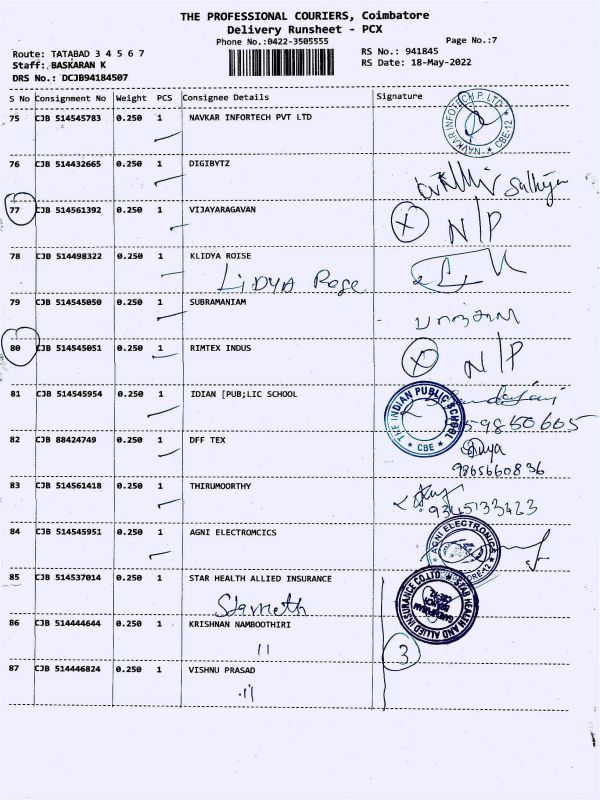 THE PROFESSIONAL COURIERS, Coimbatore
Delivery Runsheet - PCX
Phone No.:0422-3505555
Page No.:7
Route: TATABAD 3 4 5 6 7
RS No.: 941845
Staff: BASKARAN K
RS Date: 18-May-2022
DRS No.: DCJB94184507
S No Consignment No Weight PCS Consignee Details Signature
75 CJB 514545783 0.250 1 NAVKAR INFORTECH PVT LTD
NAVKAR INFOTECH P. LTD * CBE-12 *
76 CJB 514432665 0.250 1 DIGIBYTZ
77 CJB 514561392 0.250 1 VIJAYARAGAVAN
X N/P
78 CJB 514498322 0.250 1 KLIDYA ROISE
LIDYA Rose
79 CJB 514545050 0.250 1 SUBRAMANIAM
80 CJB 514545051 0.250 1 RIMTEX INDUS
X N/P
81 CJB 514545954 0.250 1 IDIAN [PUB;LIC SCHOOL
THE INDIAN PUBLIC SCHOOL * CBE *
82 CJB 88424749 0.250 1 DFF TEX
9865660836
83 CJB 514561418 0.250 1 THIRUMOORTHY
9345133423
84 CJB 514545951 0.250 1 AGNI ELECTROMCICS
AGNI ELECTRONICA
85 CJB 514537014 0.250 1 STAR HEALTH ALLIED INSURANCE
STAR HEALTH AND ALLIED INSURANCE CO.LTD
86 CJB 514444644 0.250 1 KRISHNAN NAMBOOTHIRI
11
3
87 CJB 514446824 0.250 1 VISHNU PRASAD
11